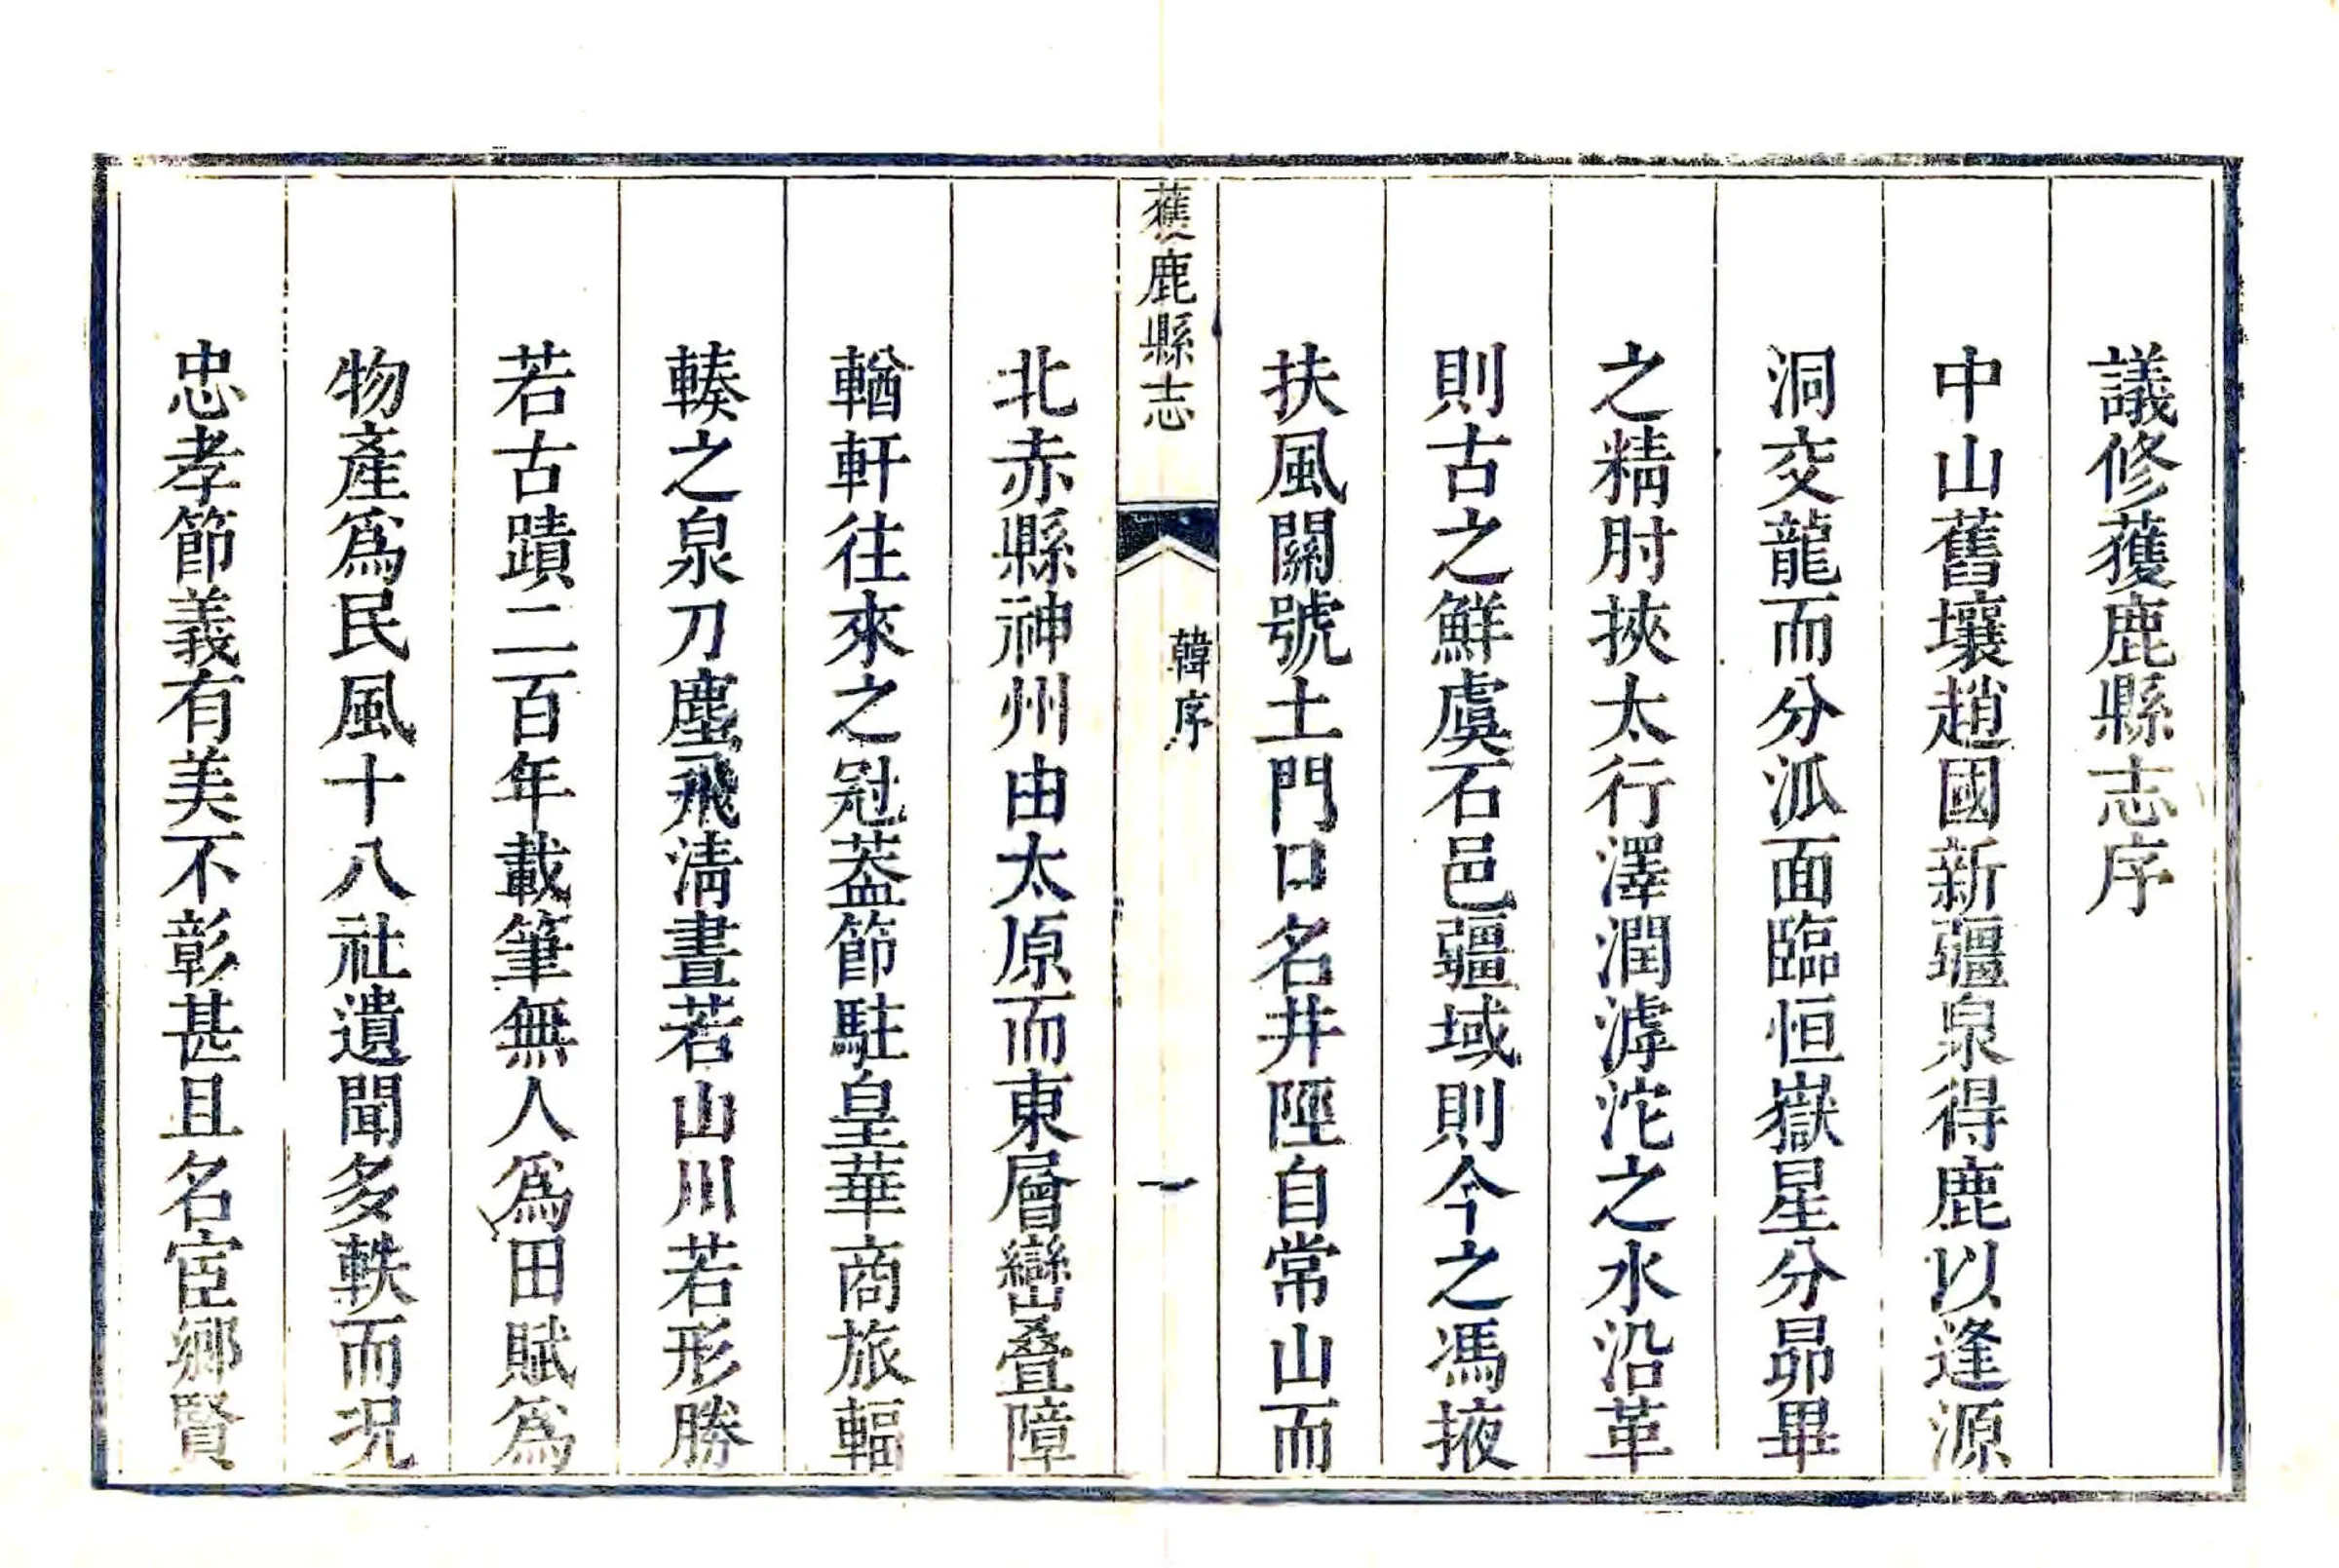 議修獲鹿縣志序
中山舊壤趙國新疆泉得鹿以逢源
洞交龍而分泒面臨恒嶽星分昴畢
之精肘挾太行澤潤滹沱之水沿革
則古之鮮虞石邑疆域則今之馮掖
扶風關號土門口名井陘自常山而
獲鹿縣志
韓序
一
北赤縣神州由太原而東層巒疊障
輶軒往來之冠葢節駐皇華商旅輻
輳之泉刀塵飛淸晝若山川若形勝
若古蹟二百年載筆無人爲田賦爲
物產爲民風十八社遺聞多軼而况
忠孝節義有美不彰甚且名宦鄉賢